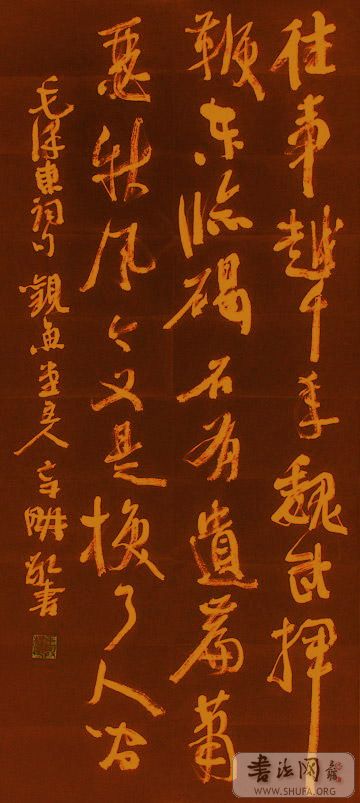 往事越千年魏武揮
鞭东临碣石有遺篇萧
瑟秋风今又是换了人间
毛泽東词句 觀魚堂主人 敬書
書法网
WWW.SHUFA.ORG